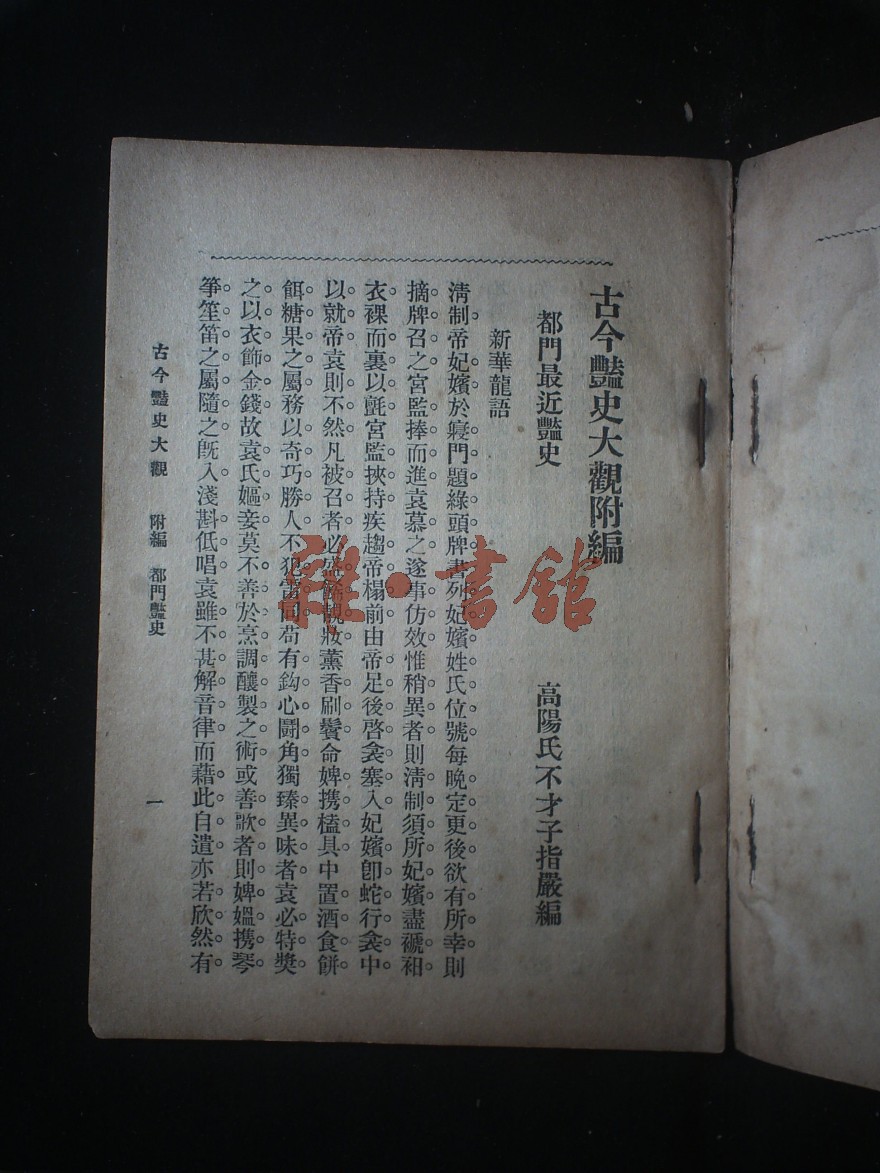 古今豔史大觀附編
都門最近豔史 高陽氏不才子指嚴編
新華龍語
淸制帝妃嬪於寢門題綠頭牌書列妃嬪姓氏位號每晚定更後欲有所幸則
摘牌召之宮監捧而進袁慕之遂事仿效惟稍異者則淸制須所妃嬪盡褫衵
衣裸而裏以氈宮監挾持疾趨帝榻前由帝足後啓衾塞入妃嬪卽蛇行衾中
以就帝袁則不然凡被召者必盛飾靚妝薰香刷鬢命婢携榼具中置酒食餅
餌糖果之屬務以奇巧勝人不犯雷同苟有鈎心鬬角獨臻異味者袁必特奬
之以衣飾金錢故袁氏嫗妾莫不善於烹調釀製之術或善歌者則婢媼携琴
箏笙笛之屬隨之旣入淺斟低唱袁雖不甚解音律而藉此自遣亦若欣然有
古今豔史大觀 附編 都門豔史 一
雜·書館